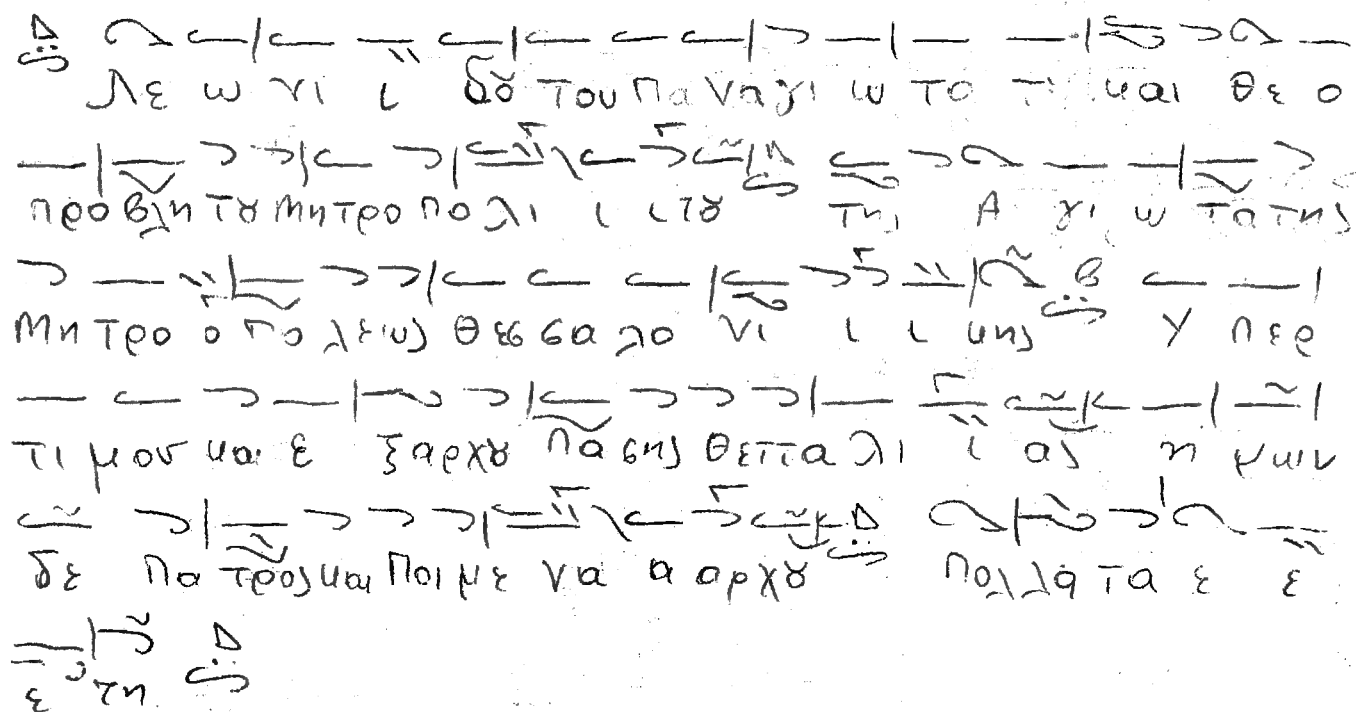 Λε ω νι ι δȣ του Πα να γι ω το τ και θε ο
προ βλη τȣ Μη τρο πο λι ι ι τȣ της Α γι ω τα της
Μη τρο ο πο λεως θεσ σα λο νι ι ι κης Υ περ
τι μου και ε ξαρχȣ πα σης θετ τα λι ι ας η μων
δε πα τρος και ποι με να α αρχȣ πολ λα τα ε ε
ε τη